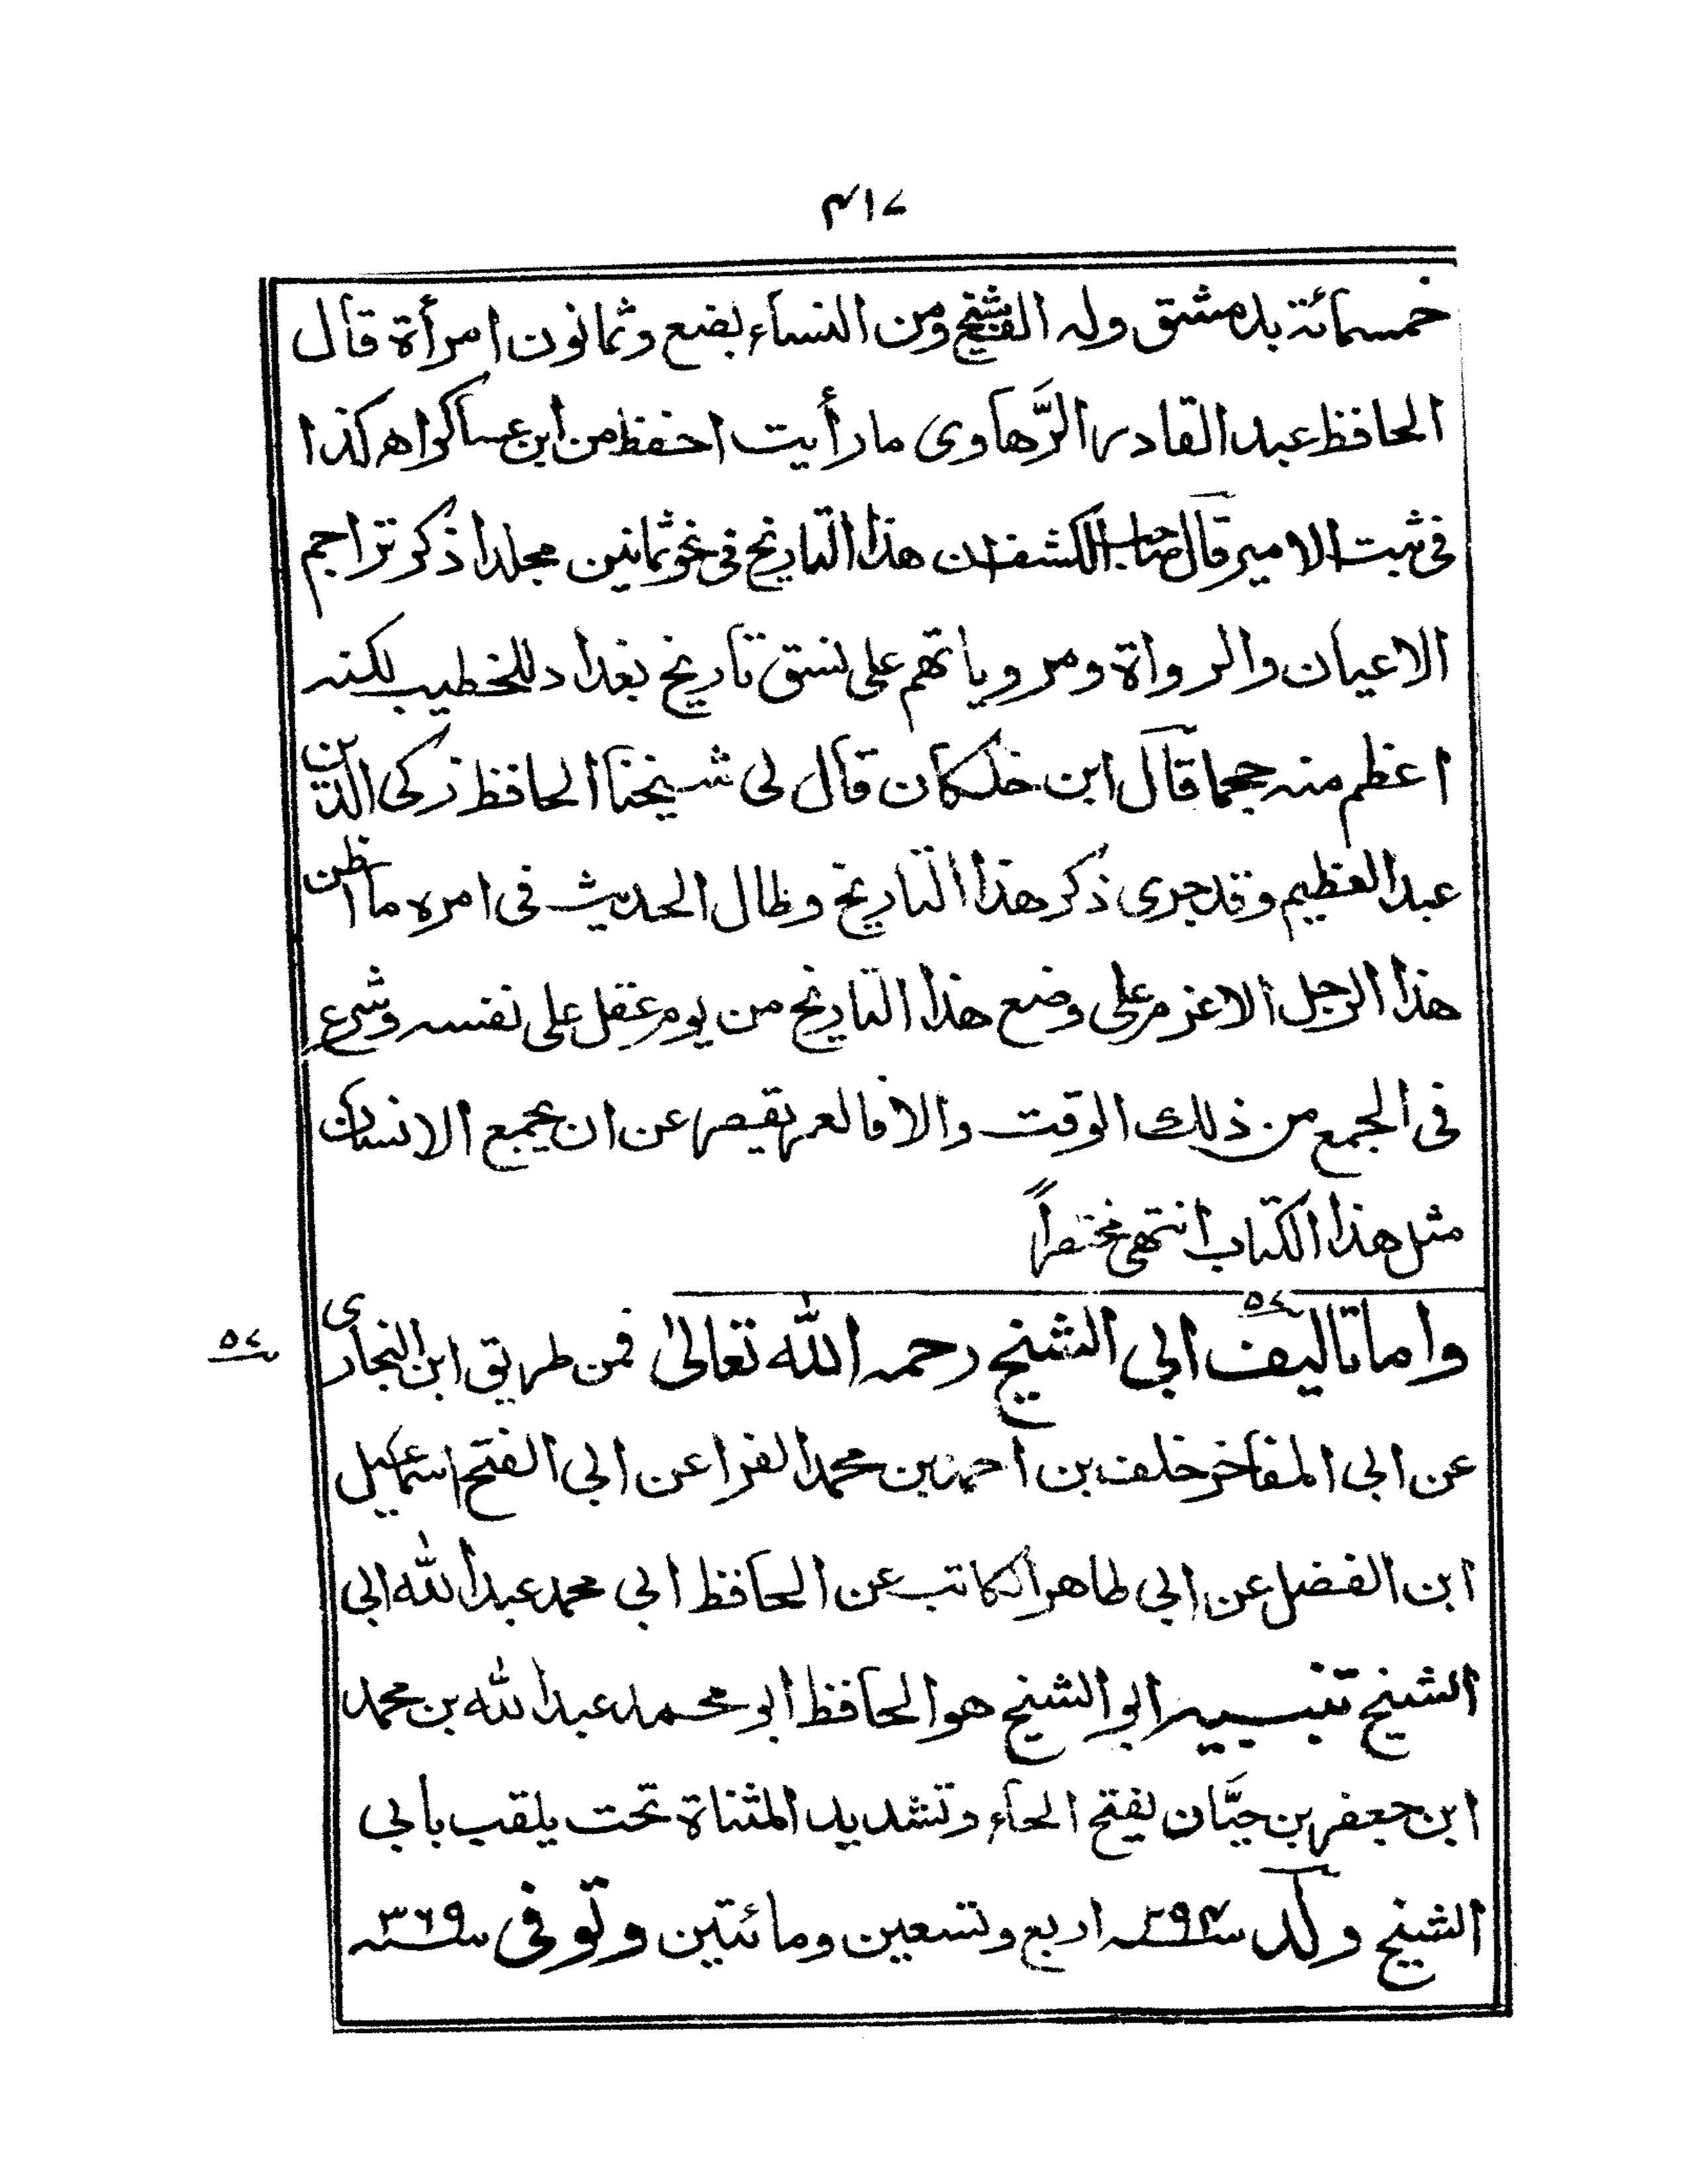 ۴۱۷
خمسمائة بدمشق وله الف شيخ ومن النساء بضع وثمانون امرأة قال
الحافظ عبد القادر الرَّهاوى ما رأيت احفظ من ابن عساكر اهـ كذا
فى ثبت الامير قال صاحب الكشف ان هذا التاريخ فى نحو ثمانين مجلدا ذكر تراجم
الاعيان والرواة ومروياتهم على نسق تاريخ بغداد للخطيب لكنه
اعظم منه حجما قال ابن خلكان قال لى شيخنا الحافظ زكى الدين
عبد العظيم وقد جرى ذكر هذا التاريخ وطال الحديث فى امره ما اظن
هذا الرجل الا عزم على وضع هذا التاريخ من يوم عقل على نفسه وشرع
فى الجمع من ذلك الوقت والا فالعمر يقصر عن ان يجمع الانسان
مثل هذا الكتاب انتهى مختصراً
واما تاليف ابى الشيخ رحمه الله تعالىٰ فمن طريق ابن النجارى
۵۷
۵۷
عن ابى المفاخر خلف بن احمد بن محمد الفرا عن ابى الفتح اسمعيل
ابن الفضل عن ابى طاهر الكاتب عن الحافظ ابى محمد عبد الله ابى
الشيخ تنبيه ابو الشيخ هو الحافظ ابو محمد عبد الله بن محمد
ابن جعفر بن حيَّان بفتح الحاء وتشديد المثناة تحت يلقب بابى
الشيخ ولد سنه ۲۹۴ اربع وتسعين ومائتين وتوفى سنه ۳۶۹